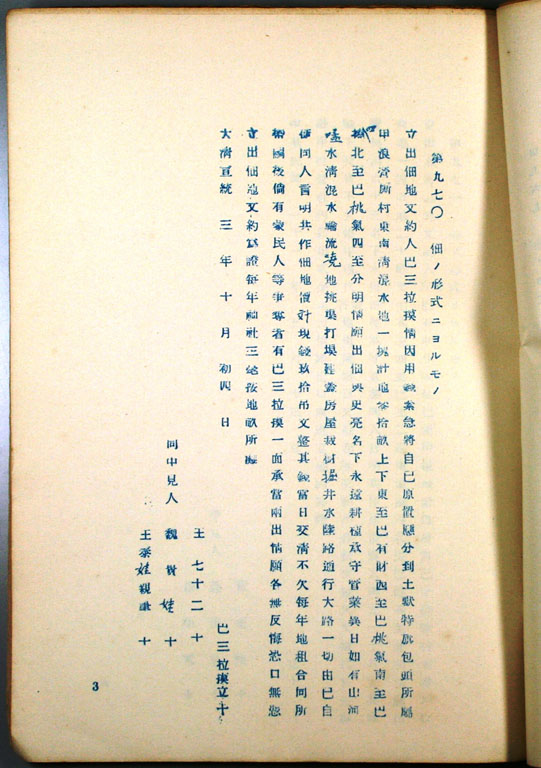 第九七〇 佃ノ形式ニヨルモノ
立出佃地文約人巴三拉瑛情因用緊急將自已原置應分到土默特旗包頭所屬
甲浪濟廟村東南淸混水地一塊計地拾畝上下東至巴有財西至巴桃氣南至巴
北至巴桃氣四至分明情願出佃與史亮名下永遠耕種承守管業異日如有山河
水淸混水輪流澆地挑渠打壩建蓋房屋栽樹掘井水隨路通行大路一切由已自
便同人言明共作佃地價計現錢玖拾吊文整其錢當日交淸不欠每年地租合同所
後倘有蒙民人等爭奪者有巴三拉瑛一面承當兩出情願各無反悔恐口無憑
立出佃地文約爲證每年社三按地畝所
大淸宣統三年十月初四日
巴三拉瑛立十
王七十二十
同中見人 魏娃十
王娃親十
3